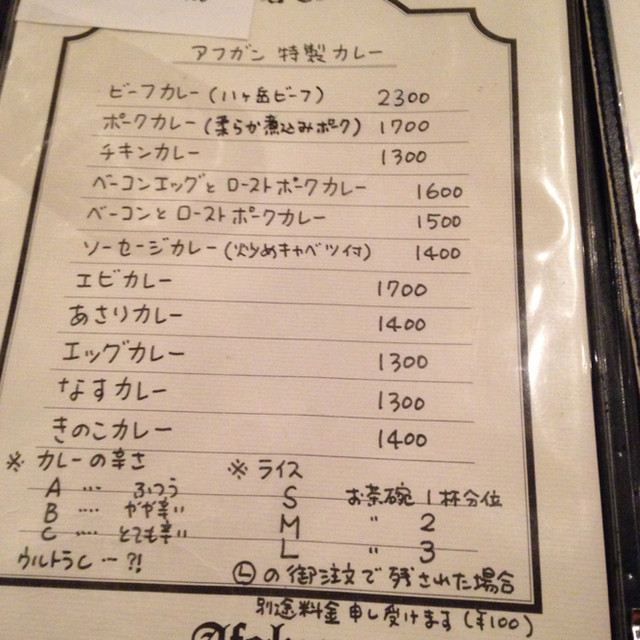 アフガン 特製カレー
ビーフカレー(八ヶ岳ビーフ) 2300
ポークカレー(柔らか煮込みポーク) 1700
チキンカレー 1300
ベーコンエッグとローストポークカレー 1600
ベーコンとローストポークカレー 1500
ソーセージカレー(炒めキャベツ付) 1400
エビカレー 1700
あさりカレー 1400
エッグカレー 1300
なすカレー 1300
きのこカレー 1400
※ カレーの辛さ ※ ライス
A ‥‥ ふつう S お茶碗 1杯分位
B ‥‥ やや辛い M 〃 2
C ‥‥ とても辛い L 〃 3
ウルトラC ‥‥ ?! Ⓛの御注文で残された場合
別途料金申し受けます(¥100)